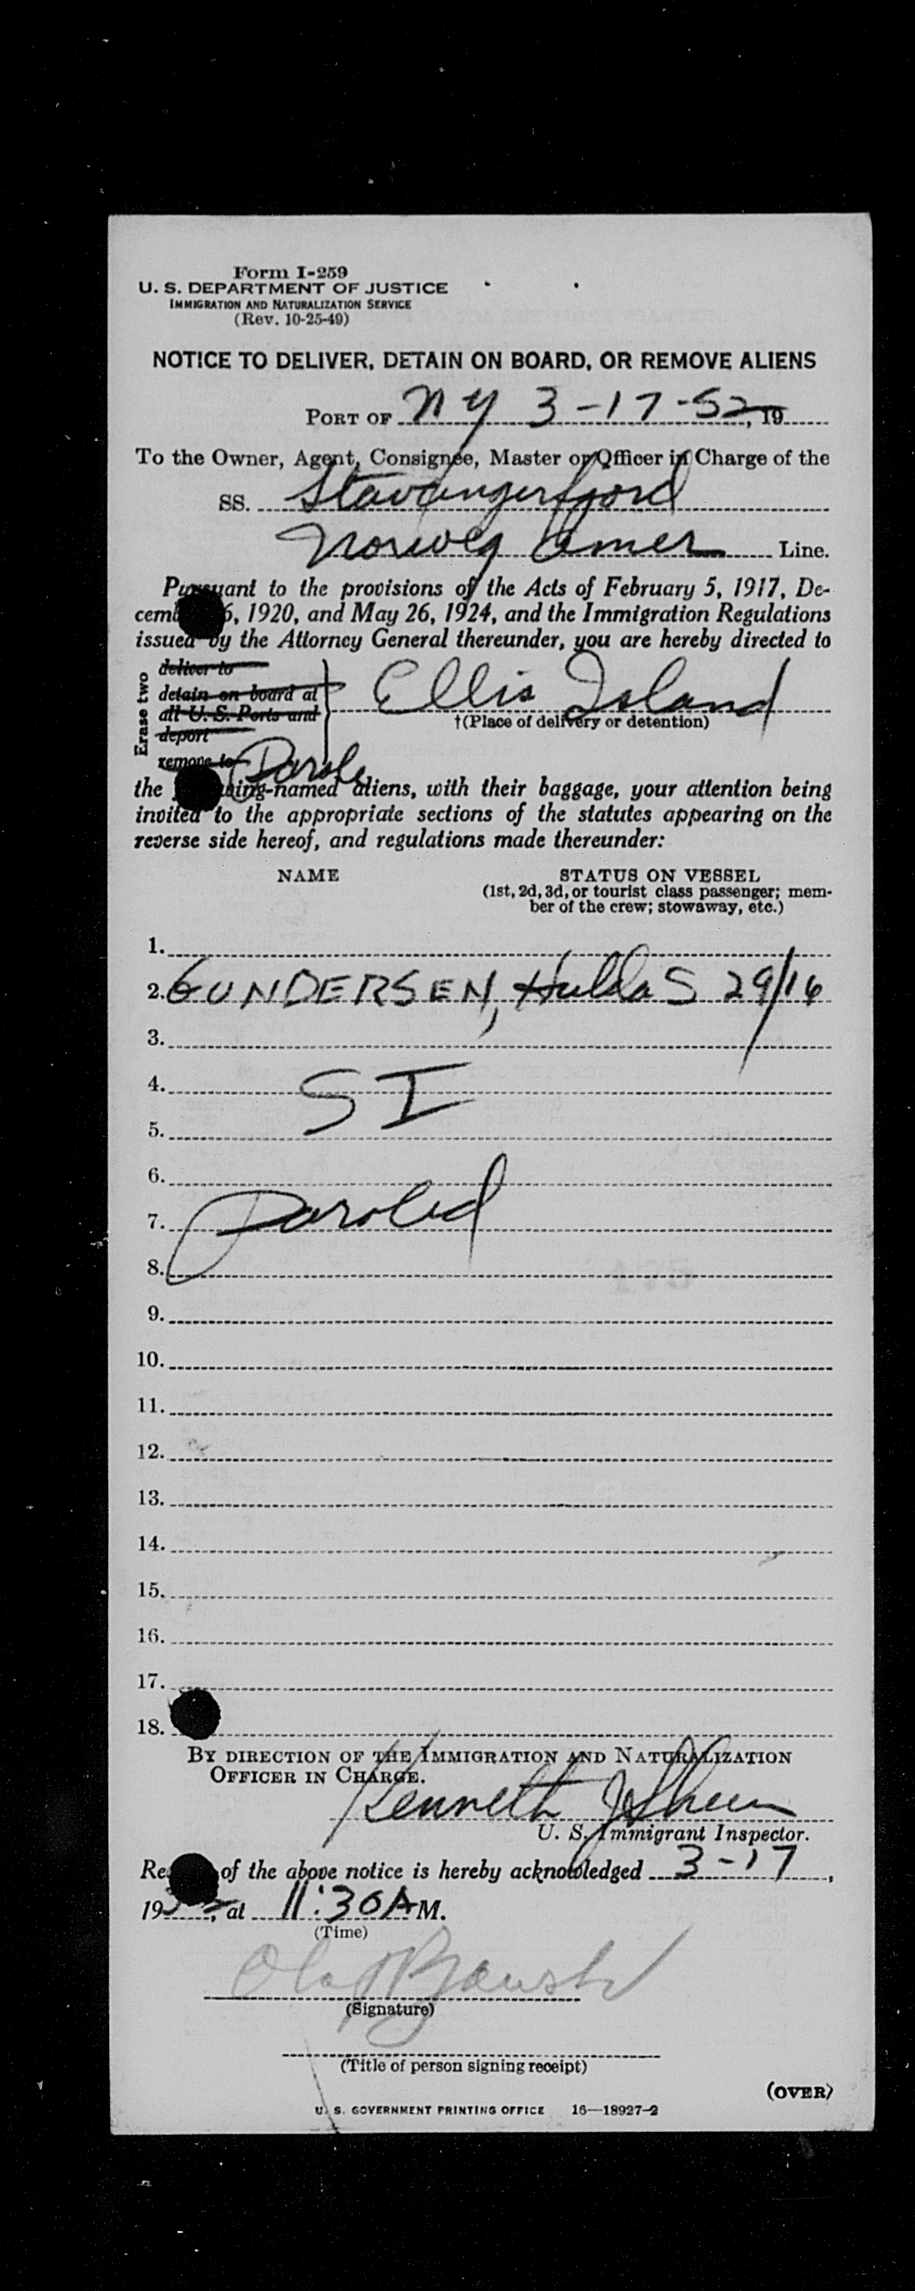 Form I-259
U. S. DEPARTMENT OF JUSTICE
IMMIGRATION AND NATURALIZATION SERVICE
(Rev. 10-25-49)
NOTICE TO DELIVER, DETAIN ON BOARD, OR REMOVE ALIENS
PORT OF NY 3-17-52, 19
To the Owner, Agent, Consignee, Master or Officer in Charge of the
SS. Stavangerfjord
Norweg Amer Line.
Pursuant to the provisions of the Acts of February 5, 1917, De-
cem 6, 1920, and May 26, 1924, and the Immigration Regulations
issued by the Attorney General thereunder, you are hereby directed to
Erase two
deliver to
detain on board at
all U. S. Ports and
deport
remove to Parole
Ellis Island
†(Place of delivery or detention)
the ing-named aliens, with their baggage, your attention being
invited to the appropriate sections of the statutes appearing on the
reverse side hereof, and regulations made thereunder:
NAME STATUS ON VESSEL
(1st, 2d, 3d, or tourist class passenger; mem-
ber of the crew; stowaway, etc.)
1.
2. GUNDERSEN, Hulda S 29/16
3.
4. SI
5.
6.
7. Paroled
8.
9.
10.
11.
12.
13.
14.
15.
16.
17.
18.
BY DIRECTION OF THE IMMIGRATION AND NATURALIZATION
OFFICER IN CHARGE.
Kenneth J
U. S. Immigrant Inspector.
Re of the above notice is hereby acknowledged 3-17,
1952, at 11:30 AM.
(Time)
Olaf
(Signature)
(Title of person signing receipt)
(OVER)
U. S. GOVERNMENT PRINTING OFFICE 16—18927-2